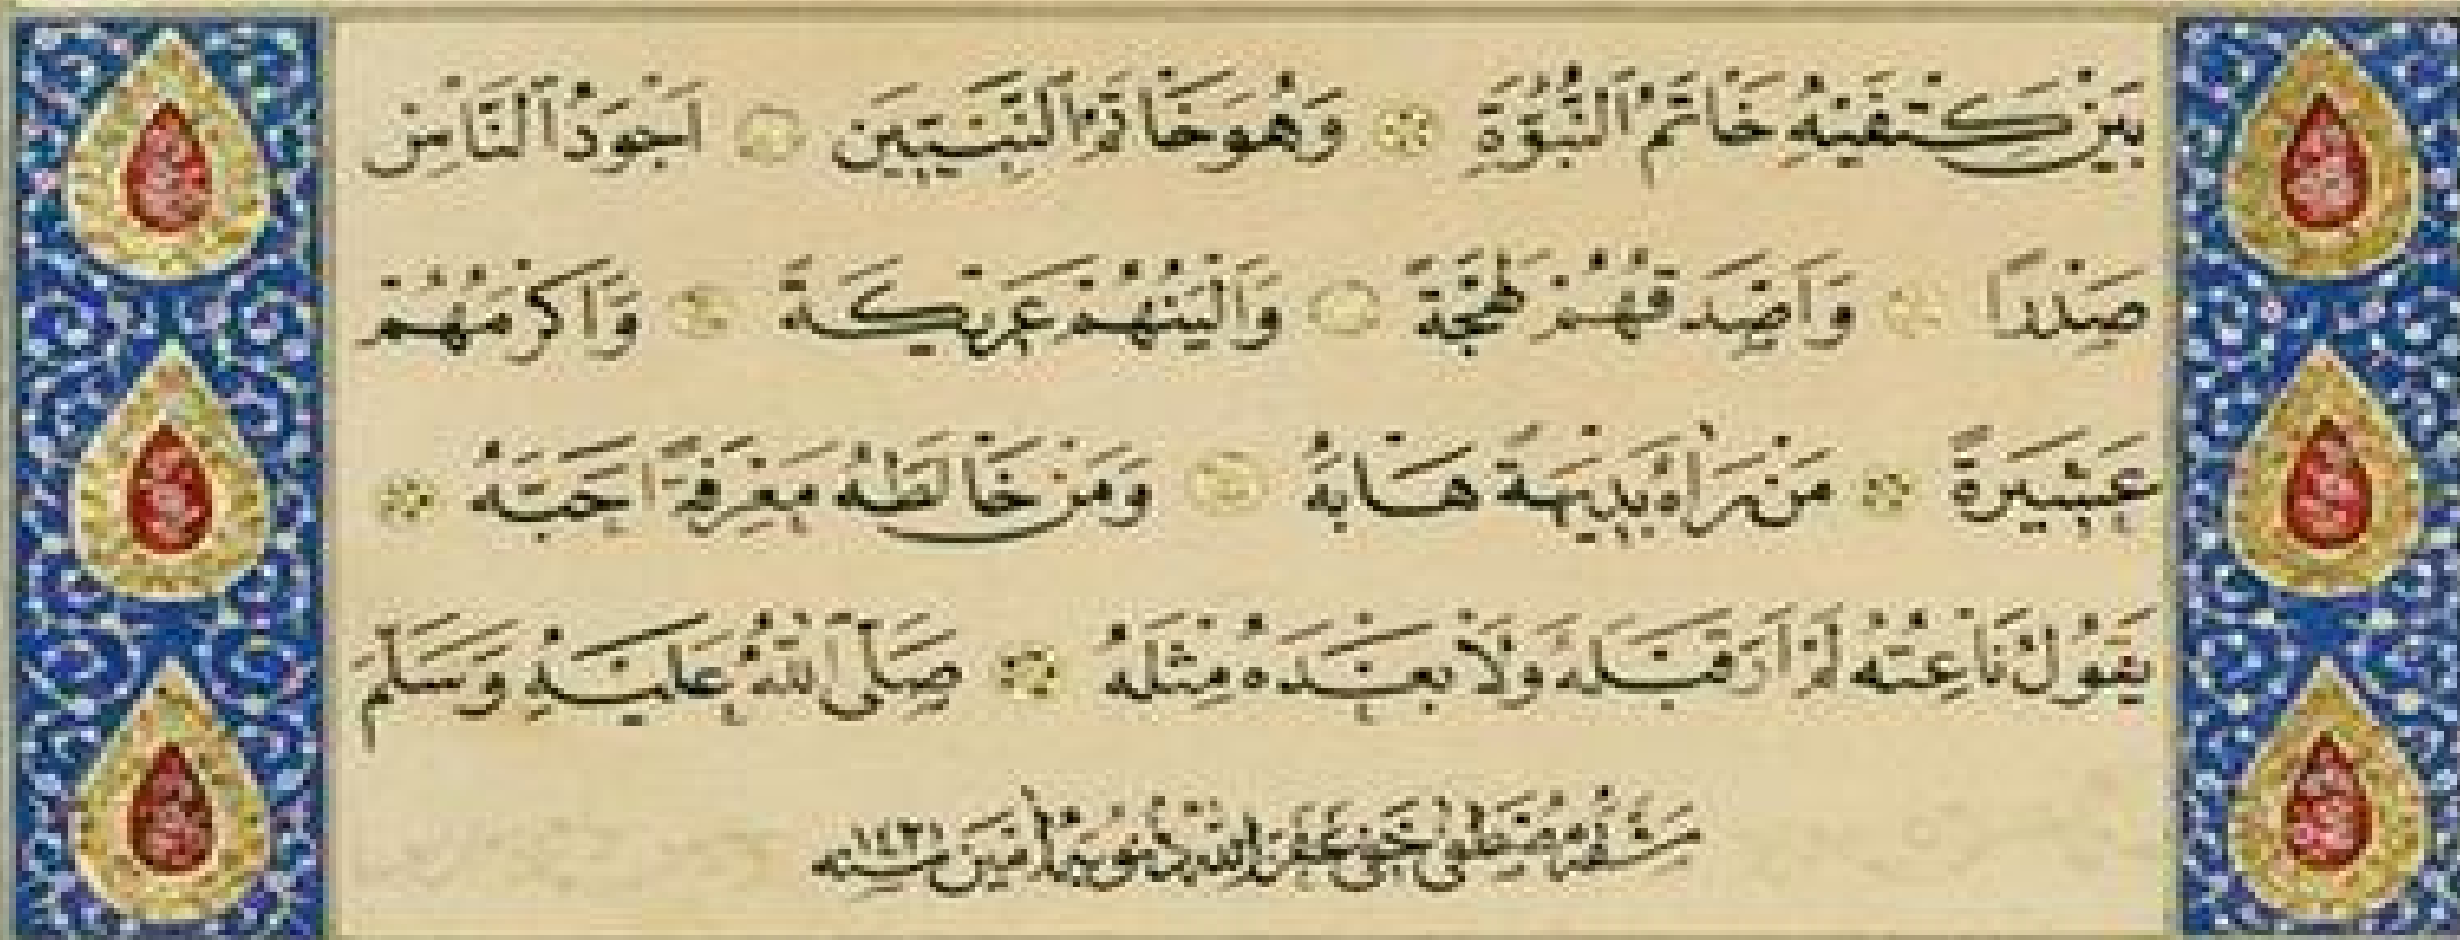 بَيْنَ كَتِفَيْهِ خَاتَمُ النُّبُوَّةِ وَهُوَ خَاتَمُ النَّبِيِّينَ اَجْوَدُ النَّاسِ
صَدْرًا وَاَصْدَقُهُمْ لَهْجَةً وَاَلْيَنُهُمْ عَرِيكَةً وَاَكْرَمُهُمْ
عَشِيرَةً مَنْ رَاٰهُ بَدِيهَةً هَابَهُ وَمَنْ خَالَطَهُ مَعْرِفَةً اَحَبَّهُ
يَقُولُ نَاعِتُهُ لَمْ اَرَ قَبْلَهُ وَلَا بَعْدَهُ مِثْلَهُ صَلَّى اللّٰهُ عَلَيْهِ وَسَلَّمَ
مَشَقَهُ غَفَرَ اللّٰهُ ذُنُوبَهُمَا اٰمِينَ سنه